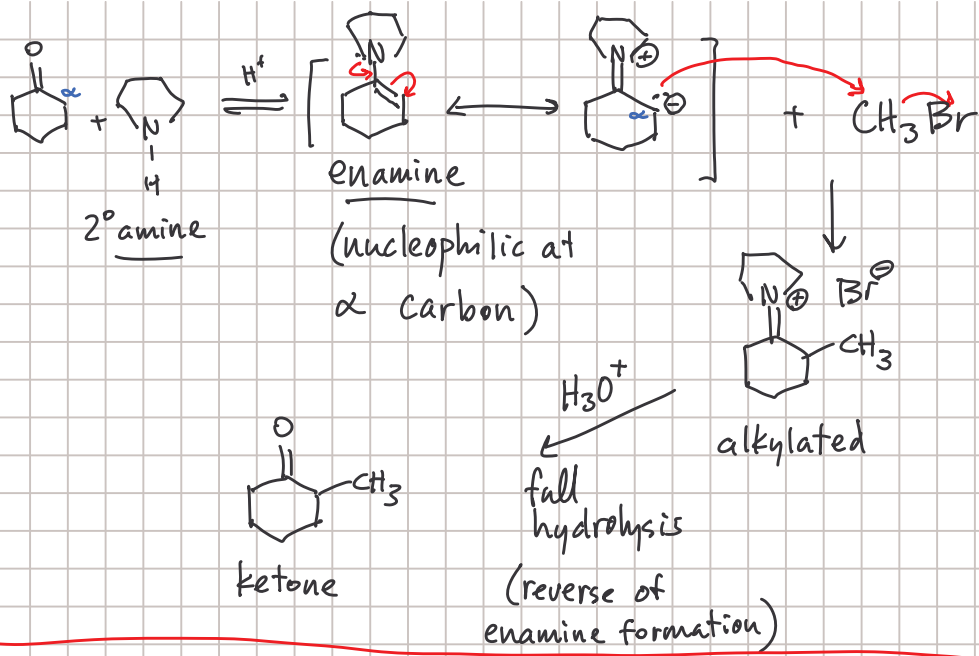 O
α
+
N
H
2° amine
H⁺
N
enamine
(nucleophilic at
α carbon)
N ⊕
α ⊖
+ CH₃Br
N ⊕ Br⊖
CH₃
alkylated
H₃O⁺
fall
hydrolysis
(reverse of
enamine formation)
O
CH₃
ketone